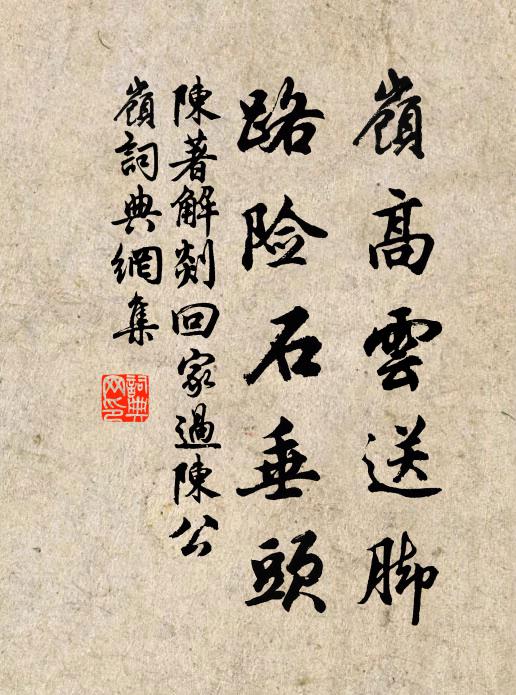 嶺高雲送脚
路险石垂頭
陳著解剡回家過陳公
嶺詞典網集
詞典网印